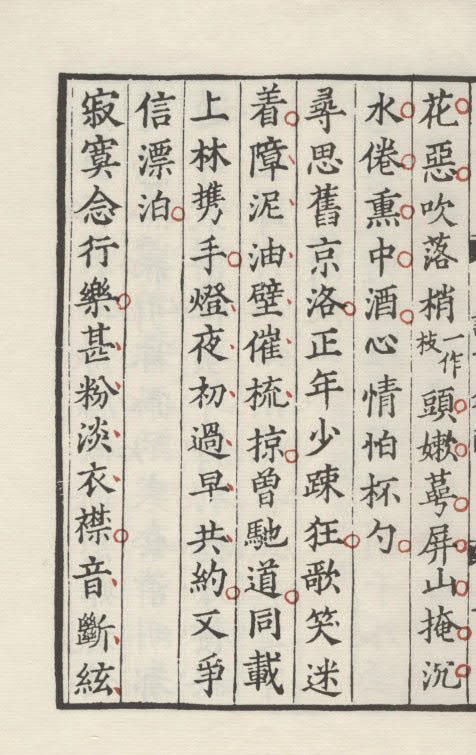 花惡吹落梢一作枝頭嫩萼屏山掩沉
水倦熏中酒心情怕杯勺
尋思舊京洛正年少踈狂歌笑迷
着障泥油壁催梳掠曾馳道同載
上林携手燈夜初過早共約又爭
信漂泊
寂寞念行樂甚粉淡衣襟音斷絃